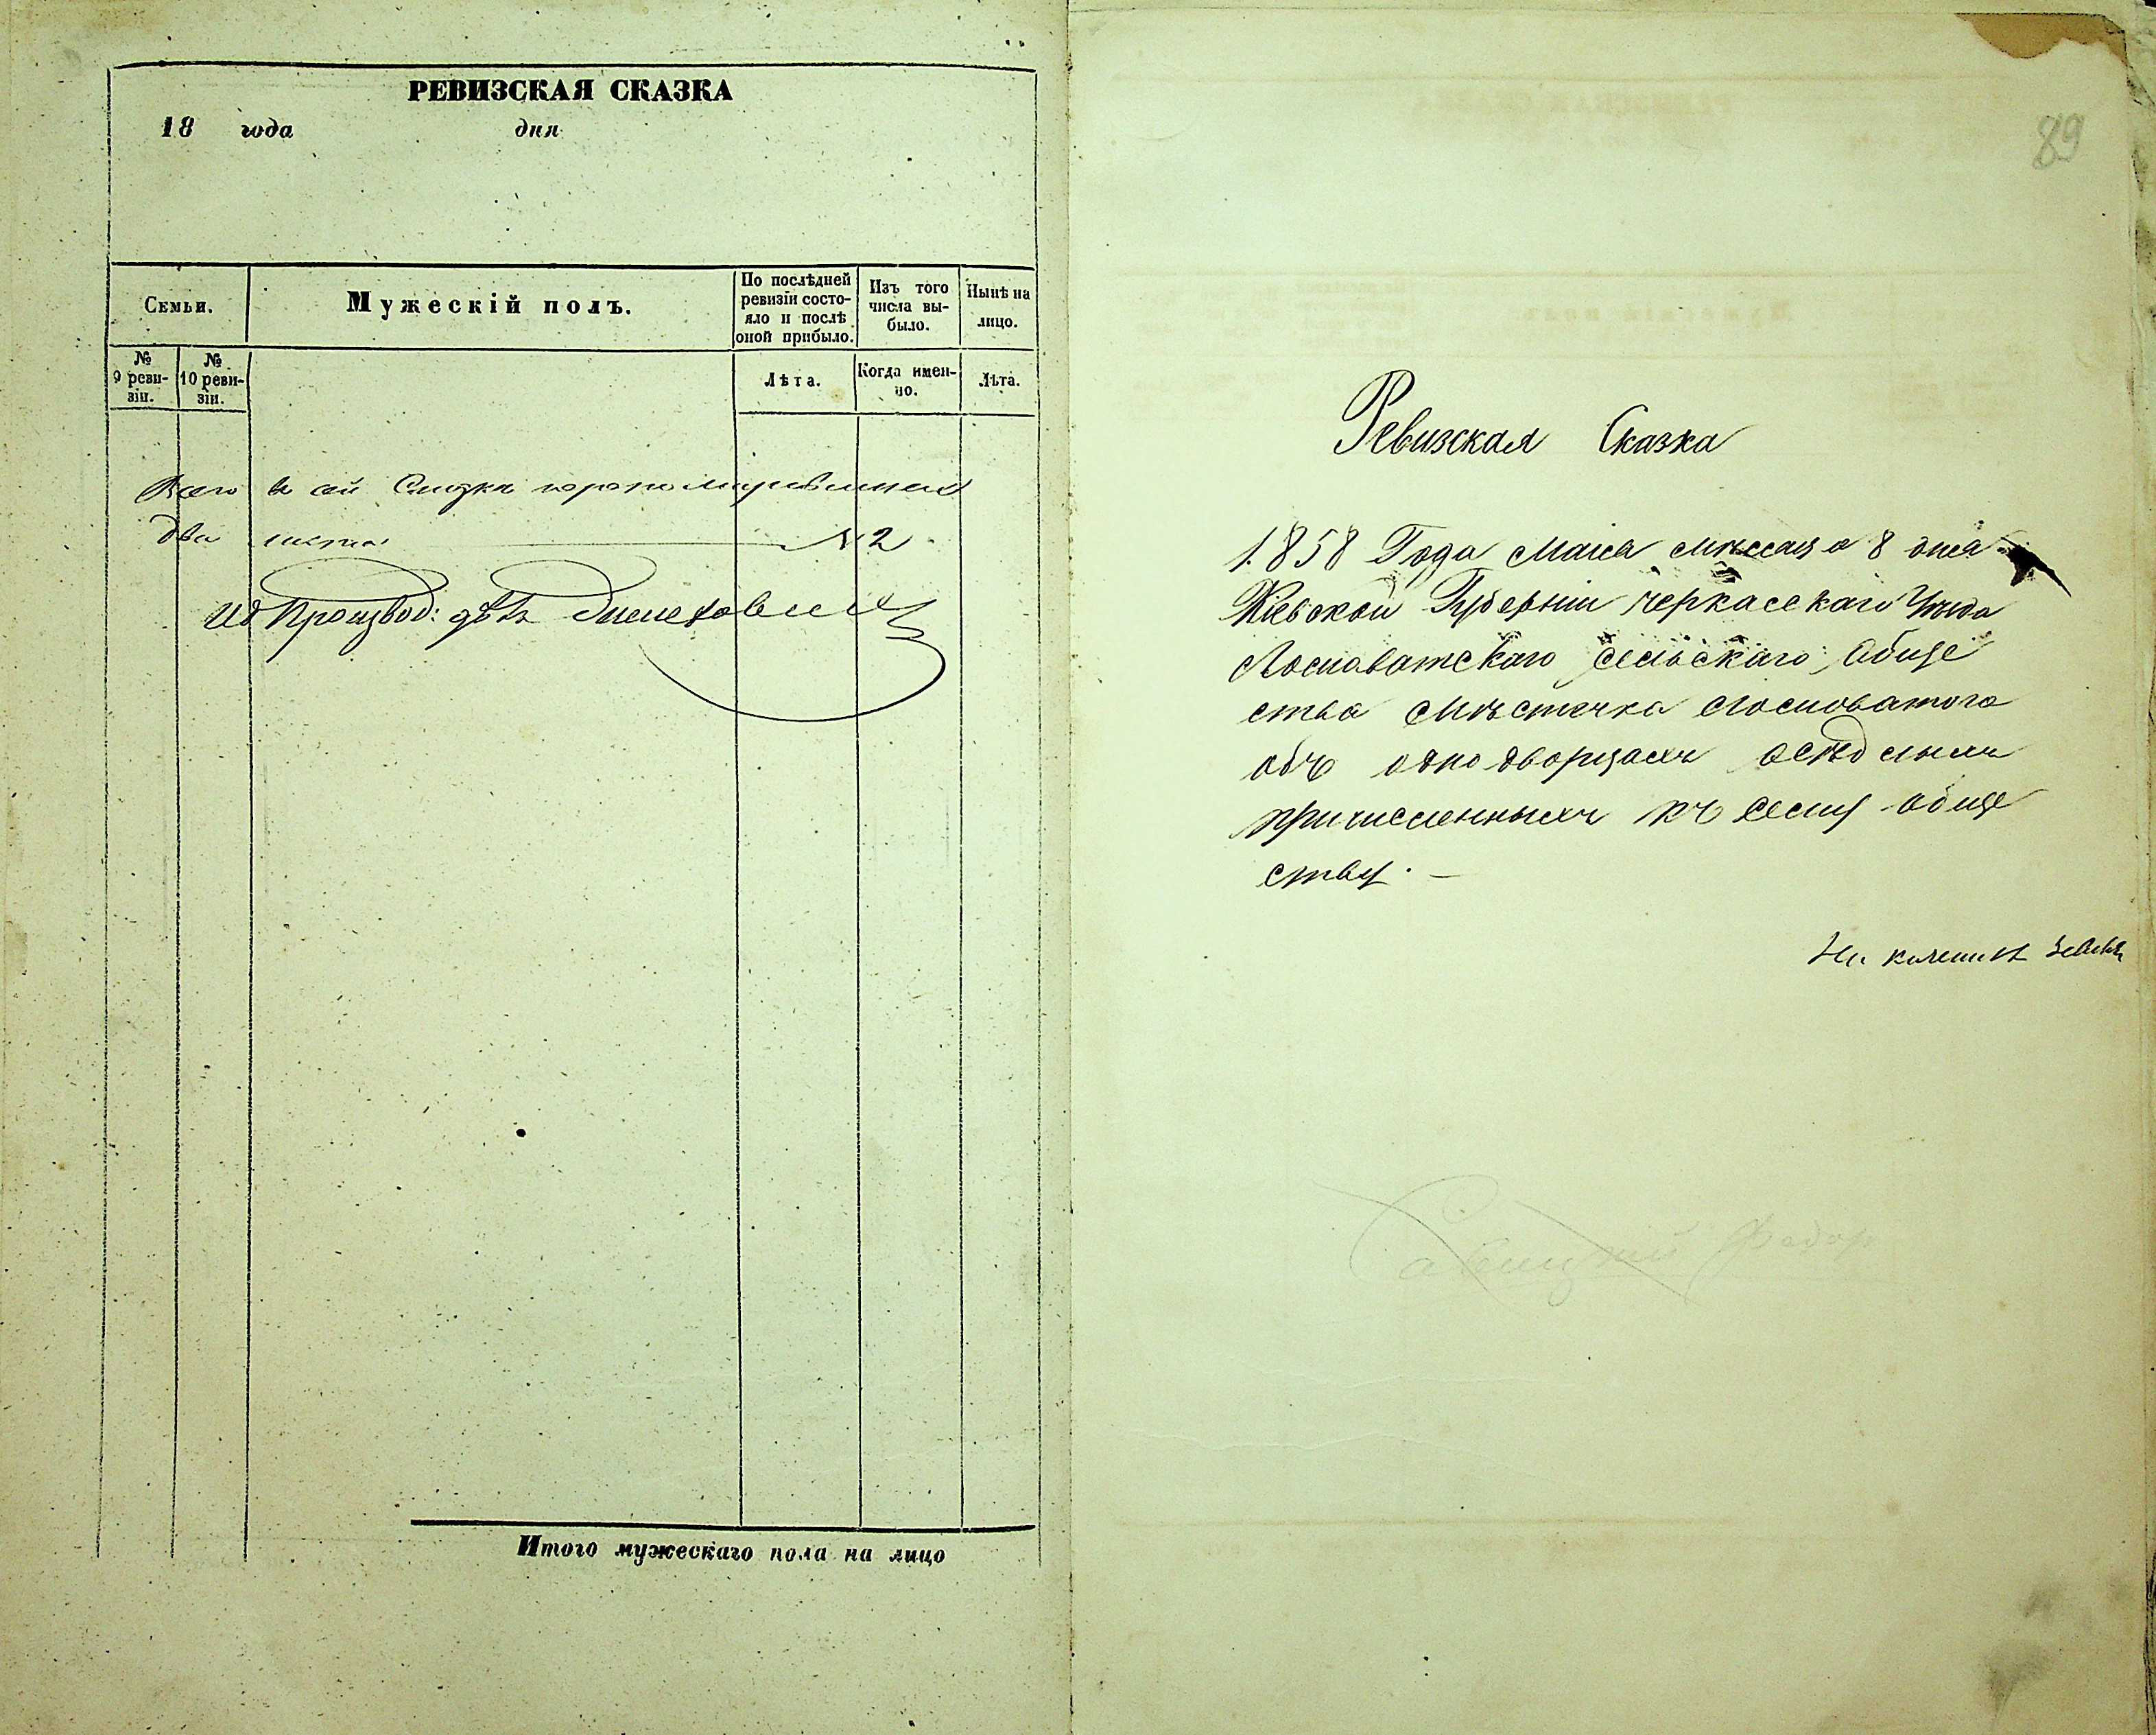 РЕВИЗСКАЯ СКАЗКА
18 года дня
Семьи.
Мужескій полъ.
По послѣдней ревизіи состо-
яло и послѣ
оной прибыло.
Изъ того
числа вы-
было.
Нынѣ на
лицо.
№
9 реви-
зіи.
№
10 реви-
зіи.
Лѣта.
Когда имен-
но.
Лѣта.
Всего въ сей Сказкѣ
два листа №2
Производ:
Итого мужескаго пола на лицо
89
Ревизская Сказка
1858 Года Маія мѣсяца 8 дня
Кіевской Губерніи черкасскаго Уѣзда
Лосноватскаго сельскаго Обще
ства мѣстечка Лосноватого
объ однодворцахъ осѣдлыхъ
причисленныхъ къ сему обще
ству. —